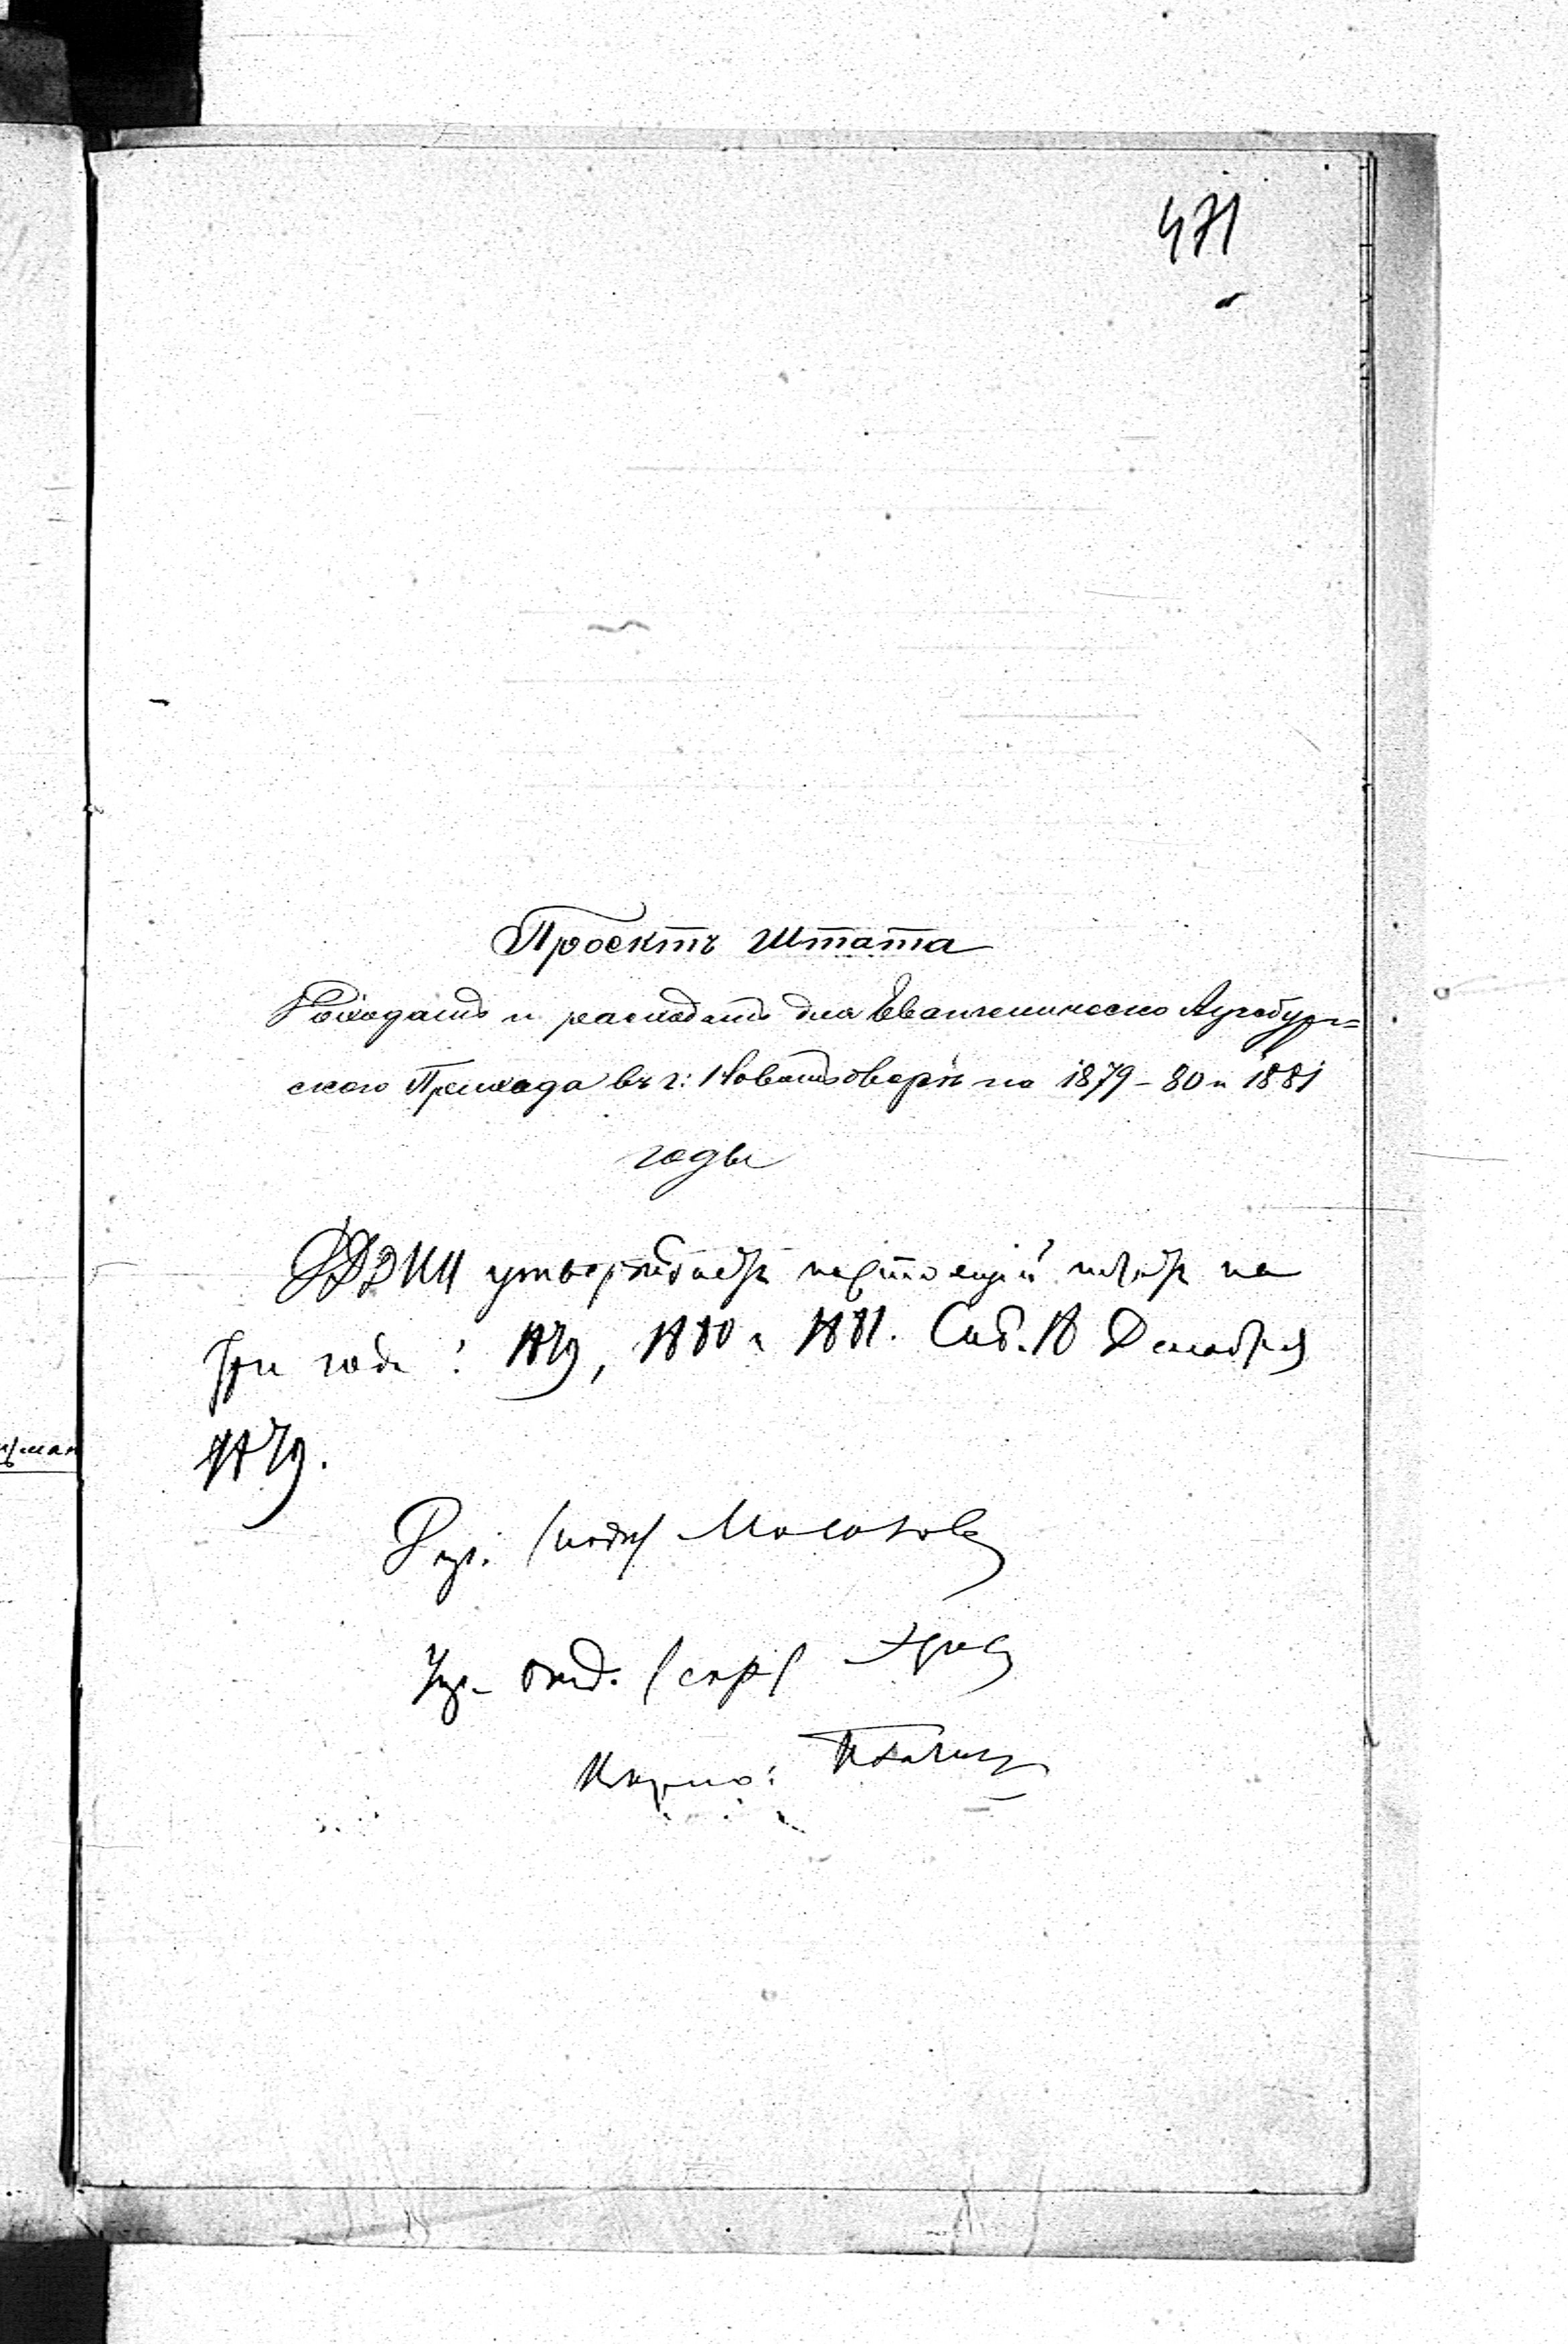 471
Проектъ Штата
Доходамъ и расходамъ для Евангелическо Аугсбург=
скаго Прихода въ г: на 1879-80 и 1881
годы
ДДЭИИ утверждаетъ настоящій штатъ на
три года: 1879, 1880 и 1881. Спб. 18 Декабря
1879.
(подп) Мосоловъ
(скр)